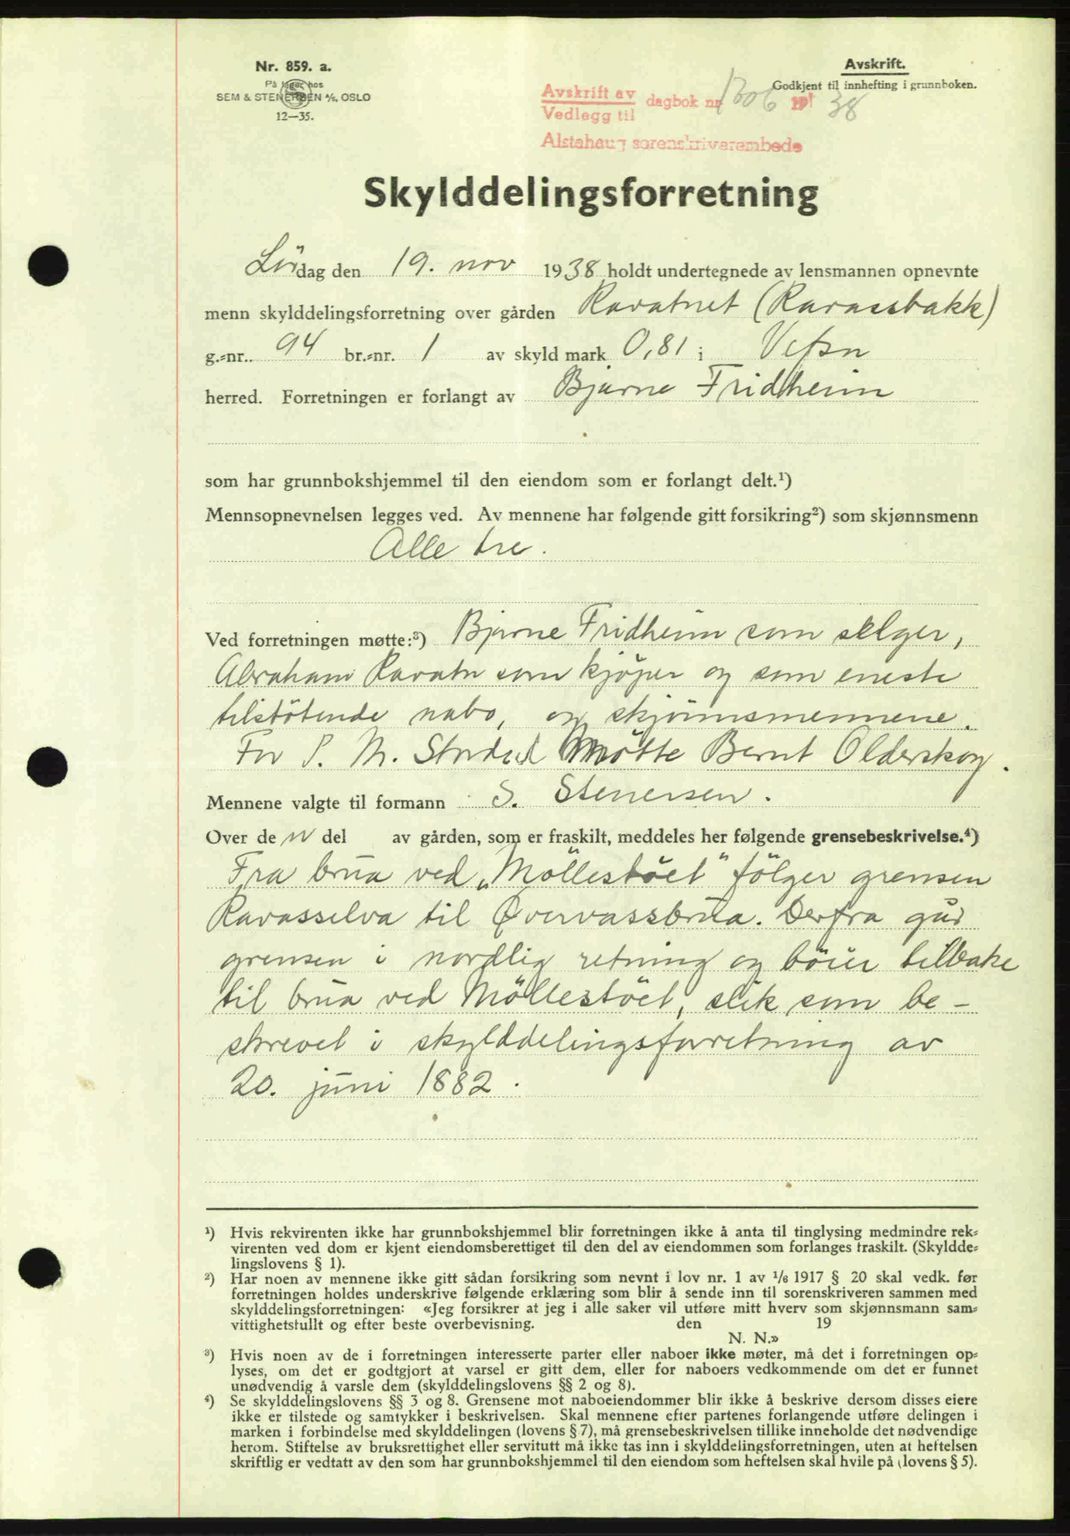 Nr. 859. a.
På lager hos
SEM & STENERSEN A/S, OSLO
12—35.
Avskrift.
Godkjent til innhefting i grunnboken.
Avskrift av
Vedlegg til
dagbok nr 1306 19 38
Alstahaug sorenskriverembede
Skylddelingsforretning
Lördag den 19. nov 1938 holdt undertegnede av lensmannen opnevnte
menn skylddelingsforretning over gården Ravatnet (Ravassbakk)
g.-nr.. 94 br.-nr. 1 av skyld mark 0,81 i Vefsn
herred. Forretningen er forlangt av Bjarne Fridheim
som har grunnbokshjemmel til den eiendom som er forlangt delt.¹)
Mennsopnevnelsen legges ved. Av mennene har følgende gitt forsikring²) som skjønnsmenn
Alle tre.
Ved forretningen møtte:³) Bjarne Fridheim som selger,
Abraham Ravatn som kjöper og som eneste
tilstötende nabo, og skjönnsmennene.
For P. M. Stordal Mötte Bernt Olderskog.
Mennene valgte til formann S. Stenersen.
Over den del av gården, som er fraskilt, meddeles her følgende grensebeskrivelse.⁴)
Fra brua ved „Möllestöet" fölger grensen
Ravasselva til Øvervassbrua. Derfra går
grensen i nordlig retning og böier tilbake
til brua ved Möllestöet, slik som be-
skrevet i skylddelingsforretning av
20. juni 1882.
¹) Hvis rekvirenten ikke har grunnbokshjemmel blir forretningen ikke å anta til tinglysing medmindre rek-
virenten ved dom er kjent eiendomsberettiget til den del av eiendommen som forlanges fraskilt. (Skyldde-
lingslovens § 1).
²) Har noen av mennene ikke gitt sådan forsikring som nevnt i lov nr. 1 av 1/6 1917 § 20 skal vedk. før
forretningen holdes underskrive følgende erklæring som blir å sende inn til sorenskriveren sammen med
skylddelingsforretningen: «Jeg forsikrer at jeg i alle saker vil utføre mitt hverv som skjønnsmann sam-
vittighetsfullt og efter beste overbevisning. den 19
N. N.»
³) Hvis noen av de i forretningen interesserte parter eller naboer ikke møter, må det i forretningen op-
lyses, om det er godtgjort at varsel er gitt dem, eller for naboers vedkommende om det er funnet
unødvendig å varsle dem (skylddelingslovens §§ 2 og 8).
⁴) Se skylddelingslovens §§ 3 og 8. Grensene mot naboeiendommer blir ikke å beskrive dersom disses eiere
ikke er tilstede og samtykker i beskrivelsen. Skal mennene efter partenes forlangende utføre delingen i
marken i forbindelse med skylddelingen (lovens § 7), må grensebeskrivelsen tillike inneholde det nødvendige
herom. Stiftelse av bruksrettighet eller servitutt må ikke tas inn i skylddelingsforretningen, uten at heftelsen
skriftlig er vedtatt av den som har grunnbokshjemmel til den eiendom som heftelsen skal hvile på (lovens § 5).